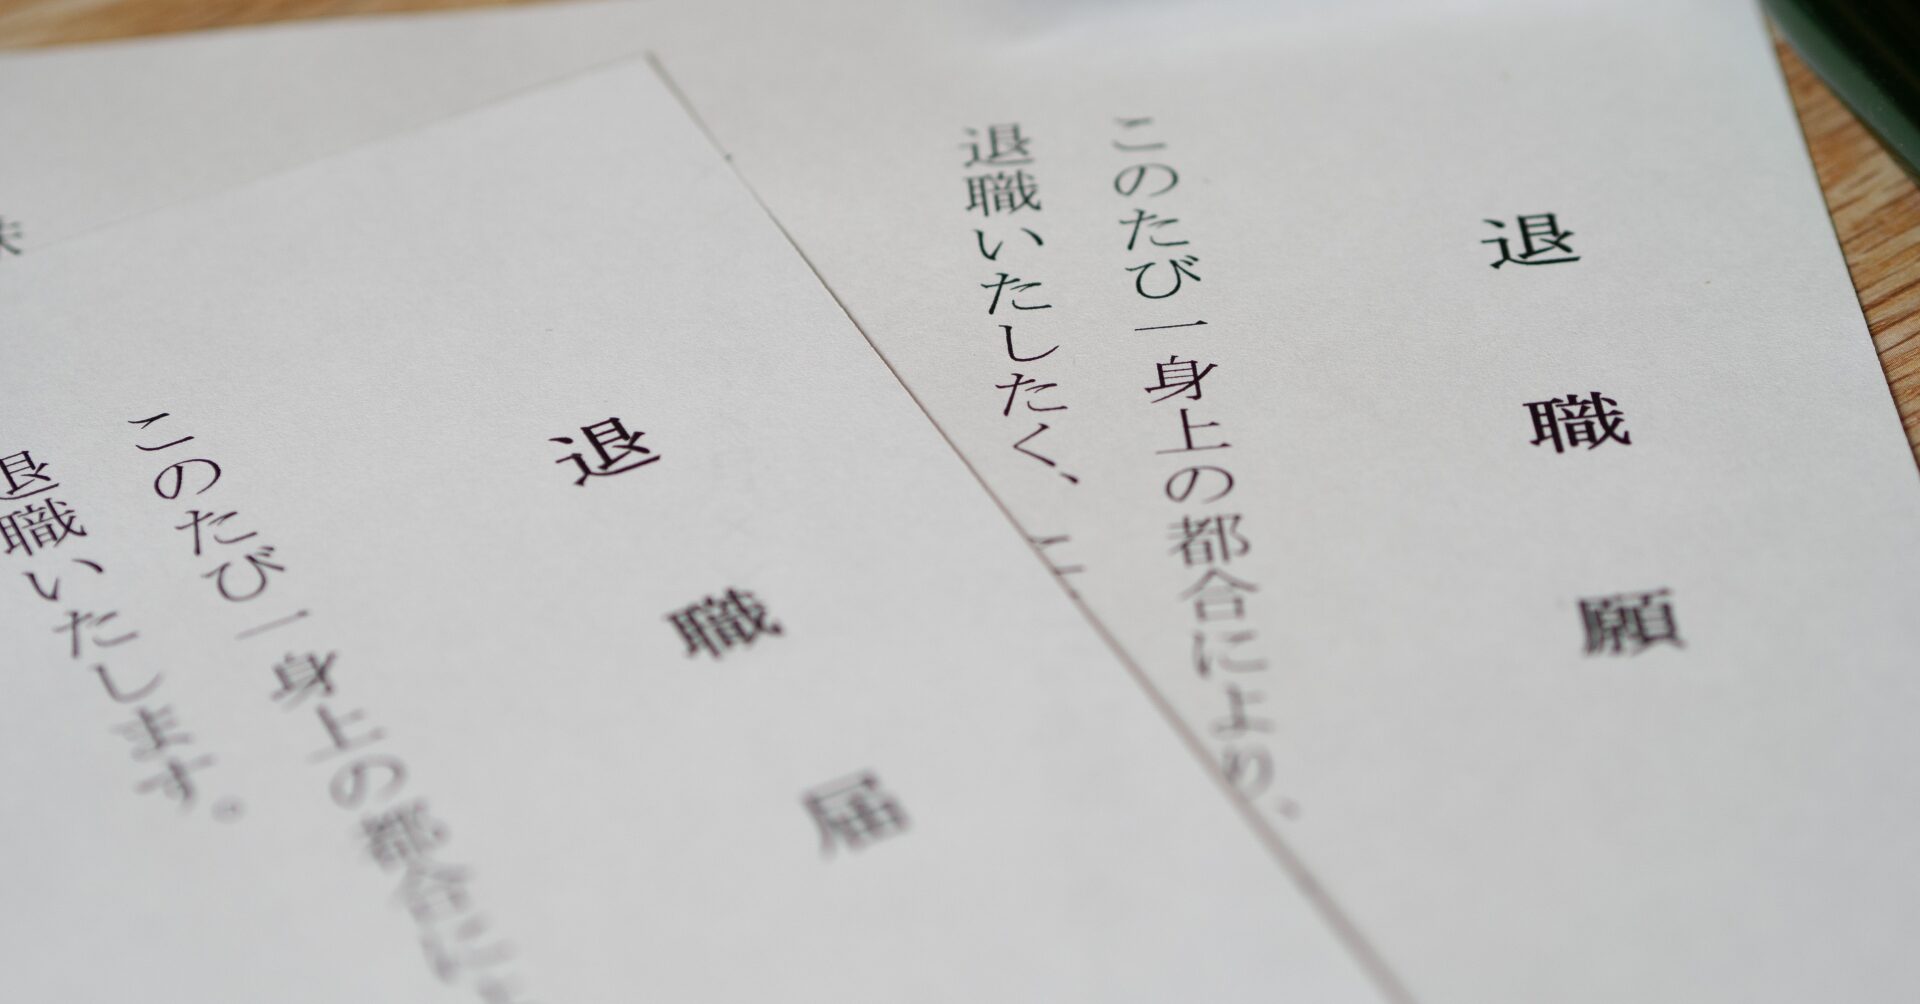 退職願
このたび一身上の都合により、
退職いたしたく、こ
退職届
このたび一身上の都合によ
退職いたします。